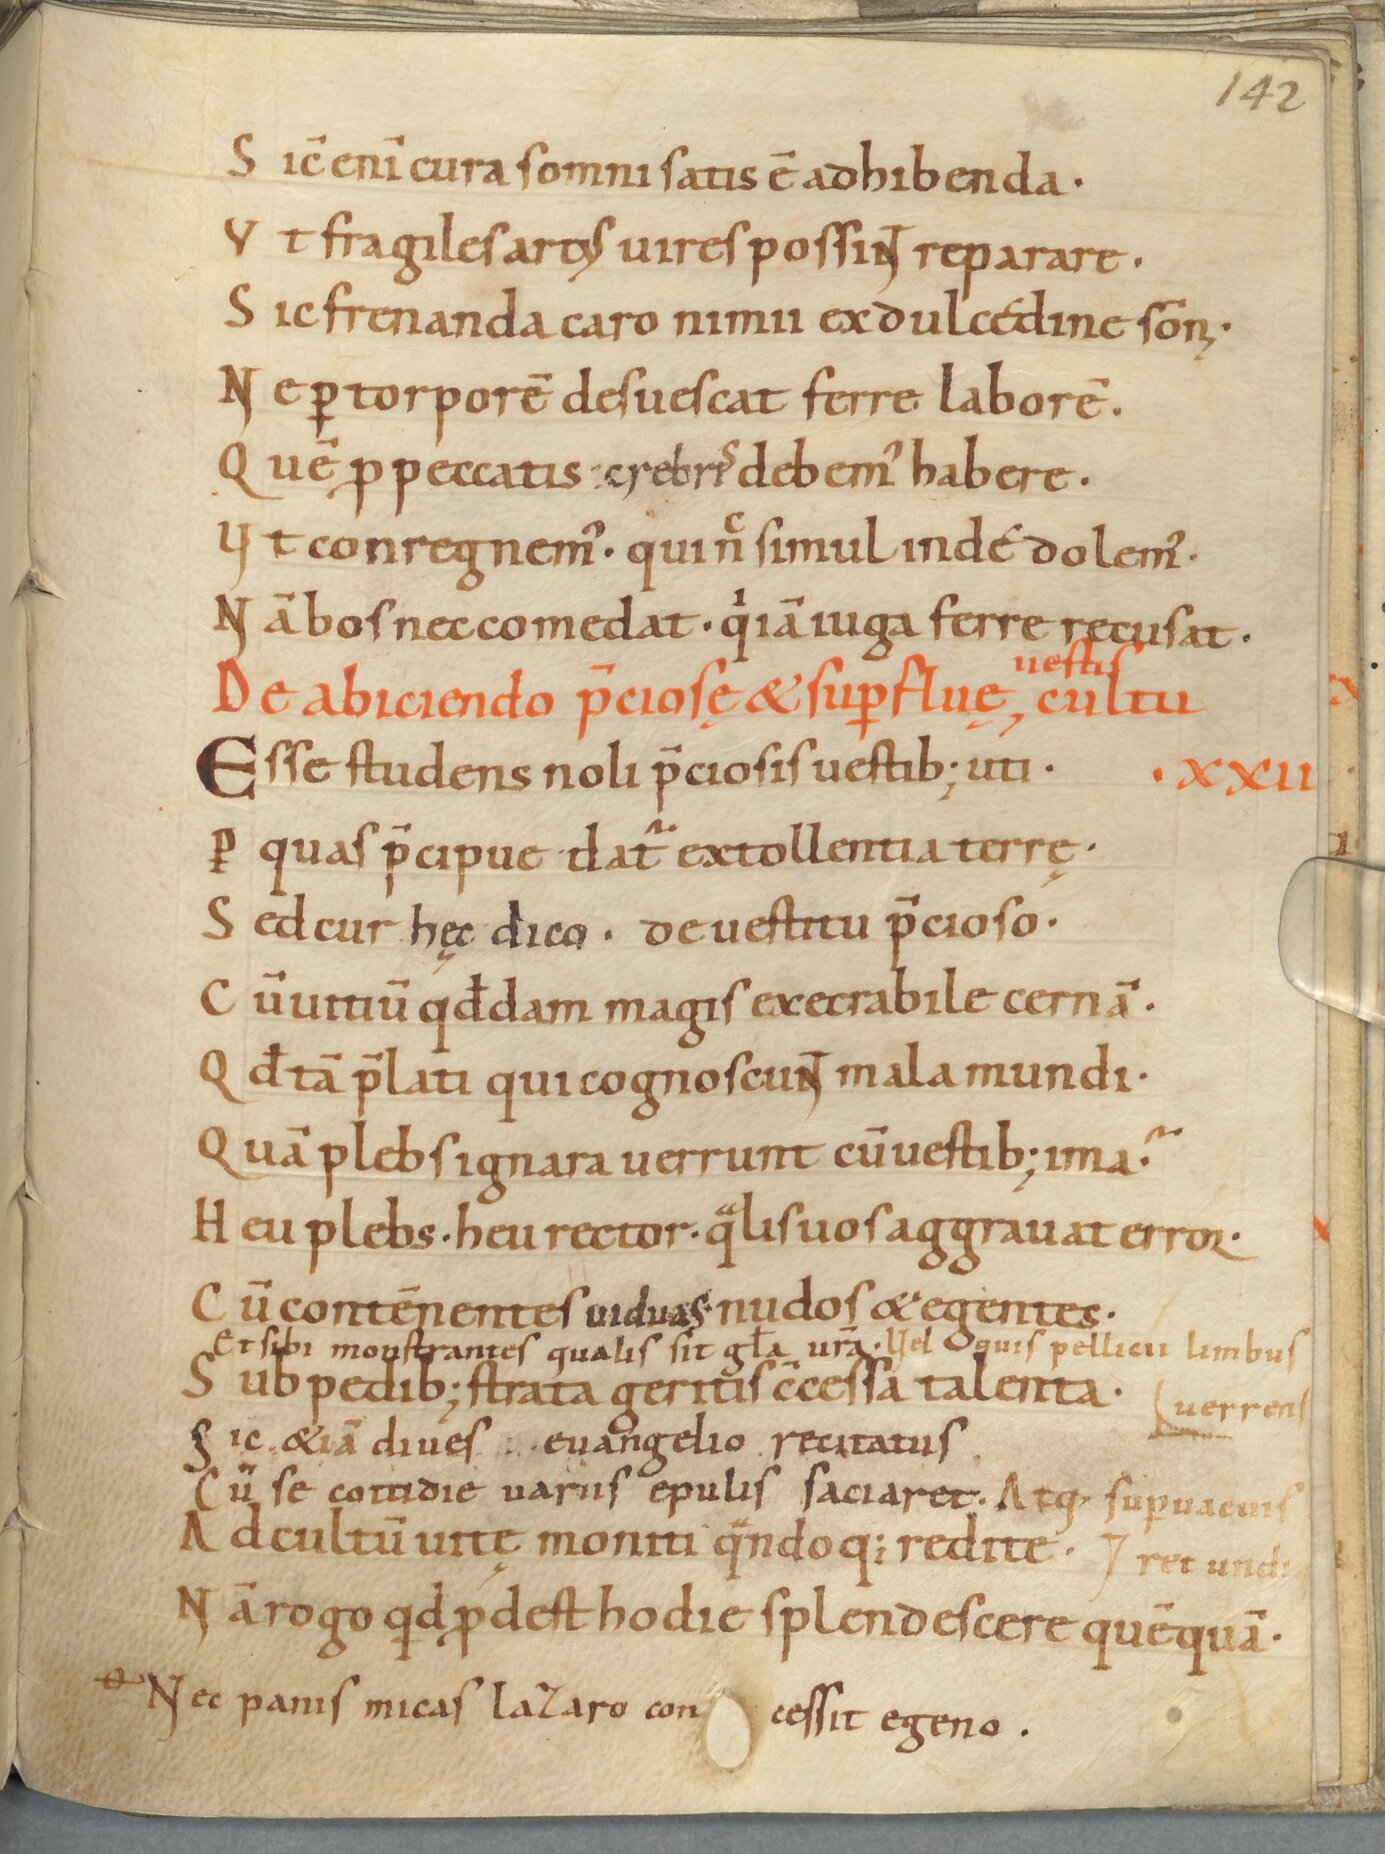 142
S ic̄ enī cura somni satis ē adhibenda·
V t fragiles artus uires possinT reparare·
S ic frenanda caro nimii ex dulcédine som̄ni·
N e ꝑ torporē desuescat ferre laborē·
Q uē ꝓ peccatis crebris debem᾿ habere·
U t conregnem᾿· qui nc̄ simul indé dolem᾿·
N ā bos nec comedat· qⁱ iā iuga ferre recusat·
uestis
De abiciendo p̄ciosę & suꝑfluę, cultu
Esse studens noli p̄ciosis uestib; uti·
·XXII
P quas p̄cipue dat᷑ extollentia terrę·
S ed cur hęc dico· de uestitu p̄cioso·
C ū uitiū qđdam magis execrabile cernā·
Q đ tā p̄lati qui cognoscunT mala mundi·
Q uā plebs ignara uerrunt cū uestib; ima·
H eu plebs· heu rector· qᵃlis uos aggrauat error·
C ū contēnentes uiduas nudos & egentes·
Et sibi monstrantes qualis sit gła urā· Uel quis pellicii limbus
uerrens
S ub pedib; strata geritis c̄cessa talenta·
S ic &iā diues euangelio recitatus
C ū se cottidie uariis epulis saciaret· Atq· suꝑuacuis
A d cultū uitę moniti qᵃndoq; redite·
ret undi
N ā rogo qđ ꝓdest hodie splendescere quēquā·
Nec panis micas lazaro con cessit egeno·